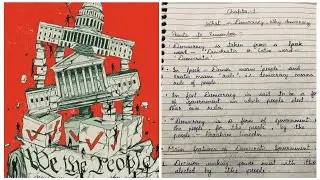 We The People
Chapter-1
What is Democracy Why Democracy
Points to Remember :
Democracy is taken from a Greek
word - "Demokratia" or Latin word -
In Greek Demos means 'people' and
Kratia means 'rule' so democracy means
rule of people.
In fact Democracy is said to be a form
of Government in which people elect
their own rulers
"Democracy is a form of government
of the people, for the people, by the
people" - Abraham Lincoln
Main features of Democratic Government
Decision making power must with those
elected by the people